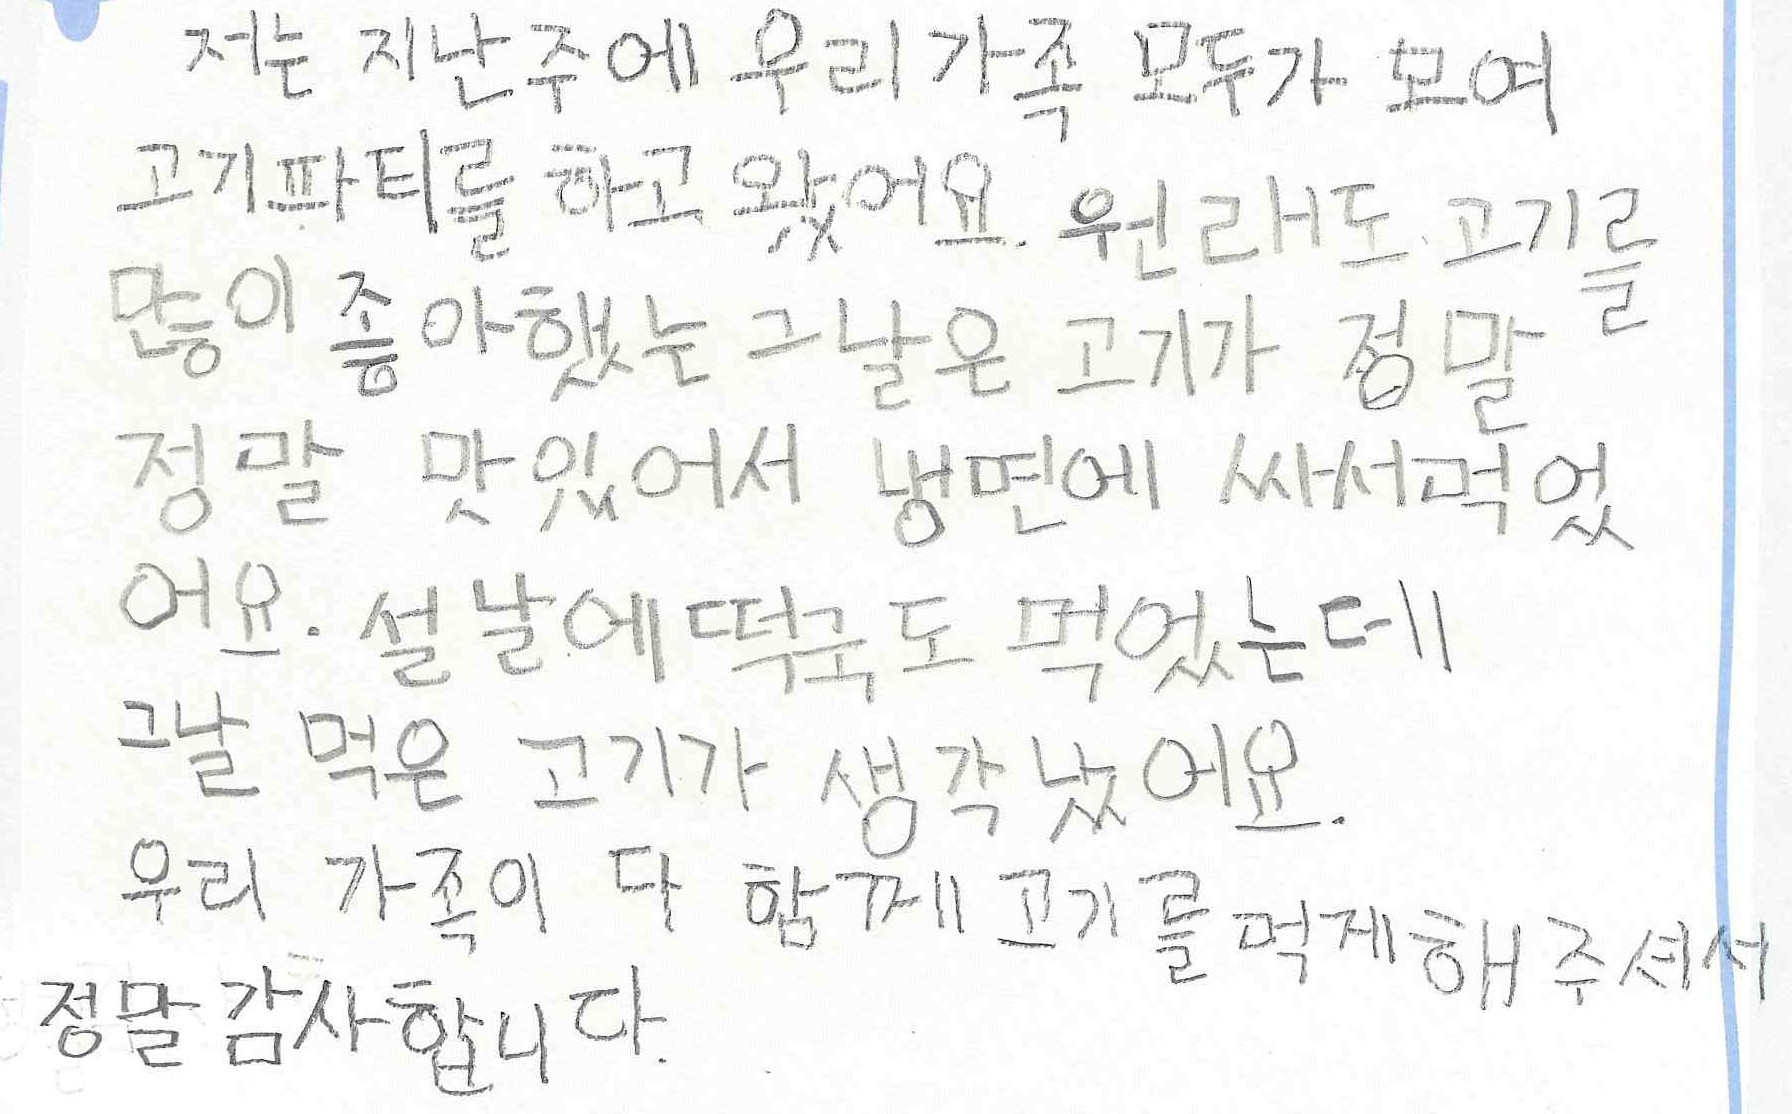 저는 지난주에 우리 가족 모두가 모여
고기파티를 하고 왔어요. 원래도 고기를
많이 좋아했는 그날은 고기가 정말
정말 맛있어서 냉면에 싸서먹었
어요. 설날에 떡국도 먹었는데
그날 먹은 고기가 생각났어요.
우리 가족이 다 함께 고기를 먹게해주셔서
정말감사합니다.